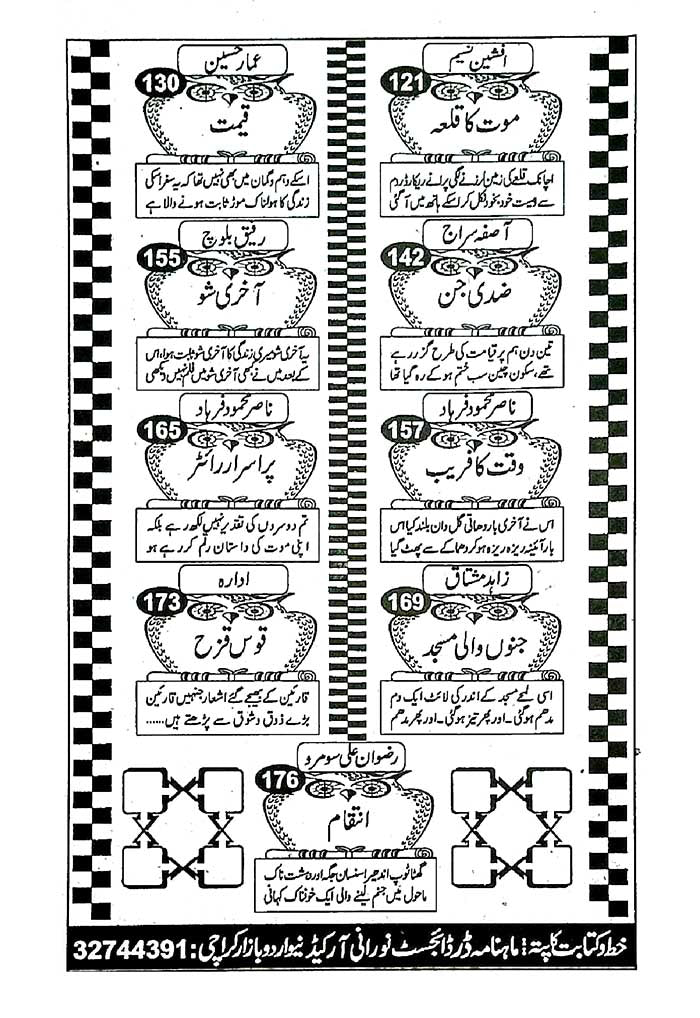 افشین نسیم
121
موت کا قلعہ
اچانک قلعے کی زمین لرزنے لگی پرانے ریکارڈ روم
سے وصیت خود بخود نکل کر اسکے ہاتھ میں آگئی
عمار حسین
130
قیمت
اسکے وہم و گمان میں بھی نہیں تھا کہ یہ سفر اسکی
زندگی کا ہولناک موڑ ثابت ہونے والا ہے
آصفہ سراج
142
ضدی جن
تین دن ہم پر قیامت کی طرح گزر رہے
تھے، سکون چین سب ختم ہو کے رہ گیا تھا
رفیق بلوچ
155
آخری شو
یہ آخری شو میری زندگی کا آخری شو ثابت ہوا، اس
کے بعد میں نے بھی آخری شو میں فلم نہیں دیکھی
ناصر محمود فرہاد
157
وقت کا فریب
اس نے آخری بار دھاتی گل دان بلند کیا اس
بار آئینہ ریزہ ریزہ ہو کر دھماکے سے پھٹ گیا
ناصر محمود فرہاد
165
پراسرار رائٹر
تم دوسردں کی تقدیر نہیں لکھ رہے بلکہ
اپنی موت کی داستان رقم کر رہے ہو
زاہد مشتاق
169
جنوں والی مسجد
اسی لمحے مسجد کے اندر کی لائٹ ایک دم
مدھم ہوگئی۔ اور پھر تیز ہوگئی۔ اور پھر مدھم
ادارہ
173
قوس قزح
قارئین کے بھیجے گئے اشعار جنہیں قارئین
بڑے ذوق و شوق سے پڑھتے ہیں......
رضوان علی سومرو
176
انتقام
گھٹا ٹوپ اندھیرا سنسان جگہ اور دہشت ناک
ماحول میں جنم لینے والی ایک خوفناک کہانی
خط و کتابت کا پتہ: ماہنامہ ڈر ڈائجسٹ نورانی آرکیڈ نیو اردو بازار کراچی: 32744391